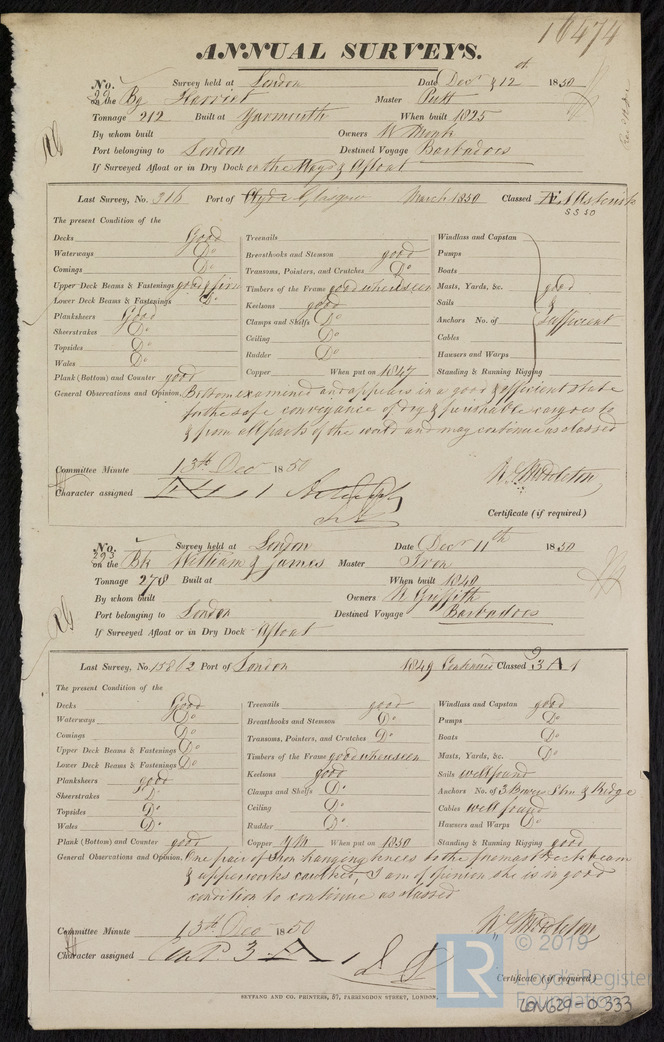 16474
ANNUAL SURVEYS.
No. Survey held at London Date Decr 12th 1850
on the Bg Harriet Master Putt
Tonnage 212 Built at Yarmouth When built 1825
By whom built Owners W Monk
Port belonging to London Destined Voyage Barbadoes
If Surveyed Afloat or in Dry Dock on the Ways & Afloat
Last Survey, No. 316 Port of Clyde Glasgow March 1850 Classed Æ1
The present Condition of the
Decks Good Treenails Windlass and Capstan
Waterways Do Breasthooks and Stemson good Pumps
Comings Do Transoms, Pointers, and Crutches Do Boats
Upper Deck Beams & Fastenings good & firm Timbers of the Frame good when seen Masts, Yards, &c. good
Lower Deck Beams & Fastenings Do Keelsons good Sails &
Planksheers Good Clamps and Shelfs Do Anchors No. of sufficient
Sheerstrakes Do Ceiling Do Cables
Topsides Do Rudder Do Hawsers and Warps
Wales Do Copper When put on 1847 Standing & Running Rigging
Plank (Bottom) and Counter good
General Observations and Opinion, Bottom examined and appears in a good & efficient state
for the safe conveyance of dry & perishable cargoes to
& from all parts of the world and may continue as classed
Committee Minute 13th Dec 1850
Character assigned Æ 1
Certificate (if required)
No. 293 Survey held at London Date Decr 11th 1850
on the Bk William & James Master Iven
Tonnage 278 Built at When built 1840
By whom built Owners R Griffith
Port belonging to London Destined Voyage Barbadoes
If Surveyed Afloat or in Dry Dock Afloat
Last Survey, No 15862 Port of London 1849 Continued Classed 3 A 1
The present Condition of the
Decks Good Treenails good Windlass and Capstan good
Waterways Do Breasthooks and Stemson Do Pumps Do
Comings Do Transoms, Pointers, and Crutches Do Boats Do
Upper Deck Beams & Fastenings Do Timbers of the Frame good when seen Masts, Yards, &c. Do
Lower Deck Beams & Fastenings Do Keelsons good Sails well found
Planksheers good Clamps and Shelfs Do Anchors No. of 3 Bower Strm & Kedge
Sheerstrakes Do Ceiling Do Cables well found
Topsides Do Rudder Do Hawsers and Warps Do
Wales Do Copper Y M When put on 1850 Standing & Running Rigging good
Plank (Bottom) and Counter good
General Observations and Opinion, One pair of Iron hanging knees to the foremast Deck beam
& upperworks caulked, I am of opinion she is in good
condition to continue as classed
Committee Minute 13th Dec 1850 W Middleton
Character assigned Cont 3 A 1
Certificate (if required)
SEYFANG AND CO. PRINTERS, 57, FARRINGDON STREET, LONDON.
LR © 2019
Lloyd's Register
Foundation
LON629-0333